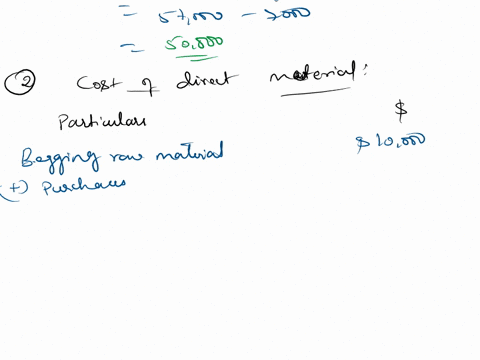 = 57,000 - 7000
= 50,000
② Cost of direct material:
Particulars $
Begging raw material $10,000
(+) Purchases